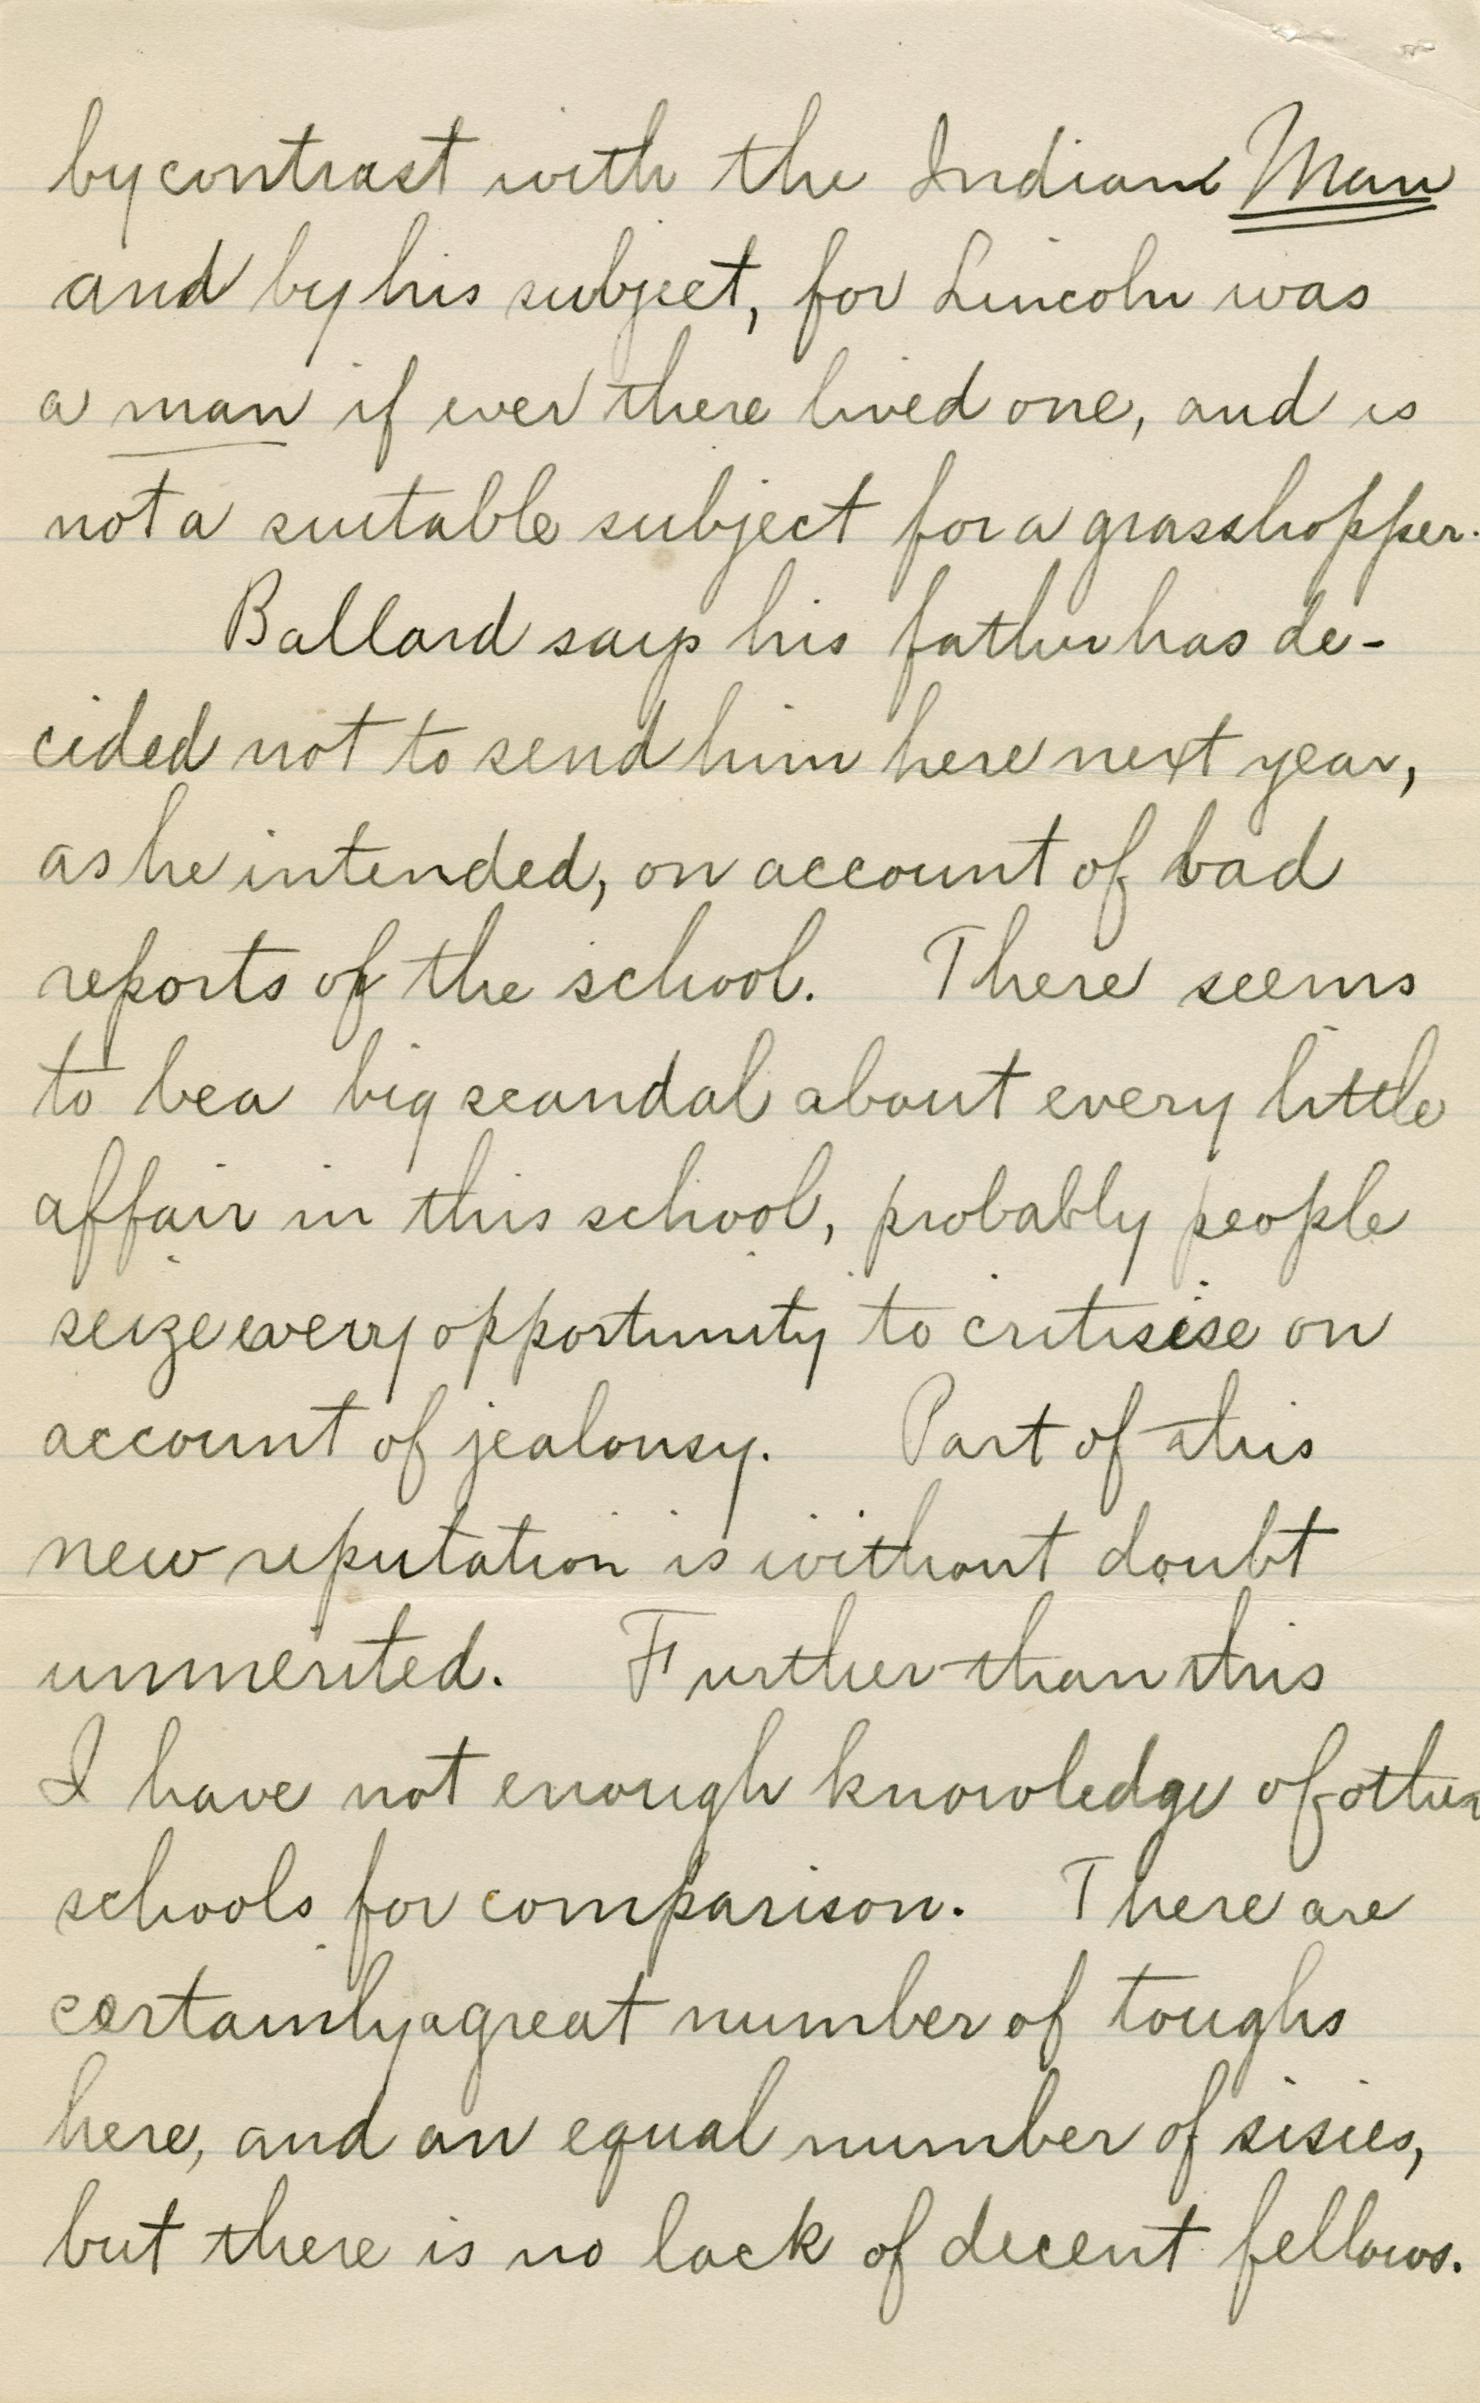 by contrast with the Indian Man
and by his subject, for Lincoln was
a man if ever there lived one, and is
not a suitable subject for a grasshopper.
Ballard says his father has de-
cided not to send him here next year,
as he intended, on account of bad
reports of the school. There seems
to be a big scandal about every little
affair in this school, probably people
seize every opportunity to critisise on
account of jealousy. Part of this
new reputation is without doubt
unmerited. Further than this
I have not enough knowledge of other
schools for comparison. There are
certainly a great number of toughs
here, and an equal number of sisies,
but there is no lack of decent fellows.